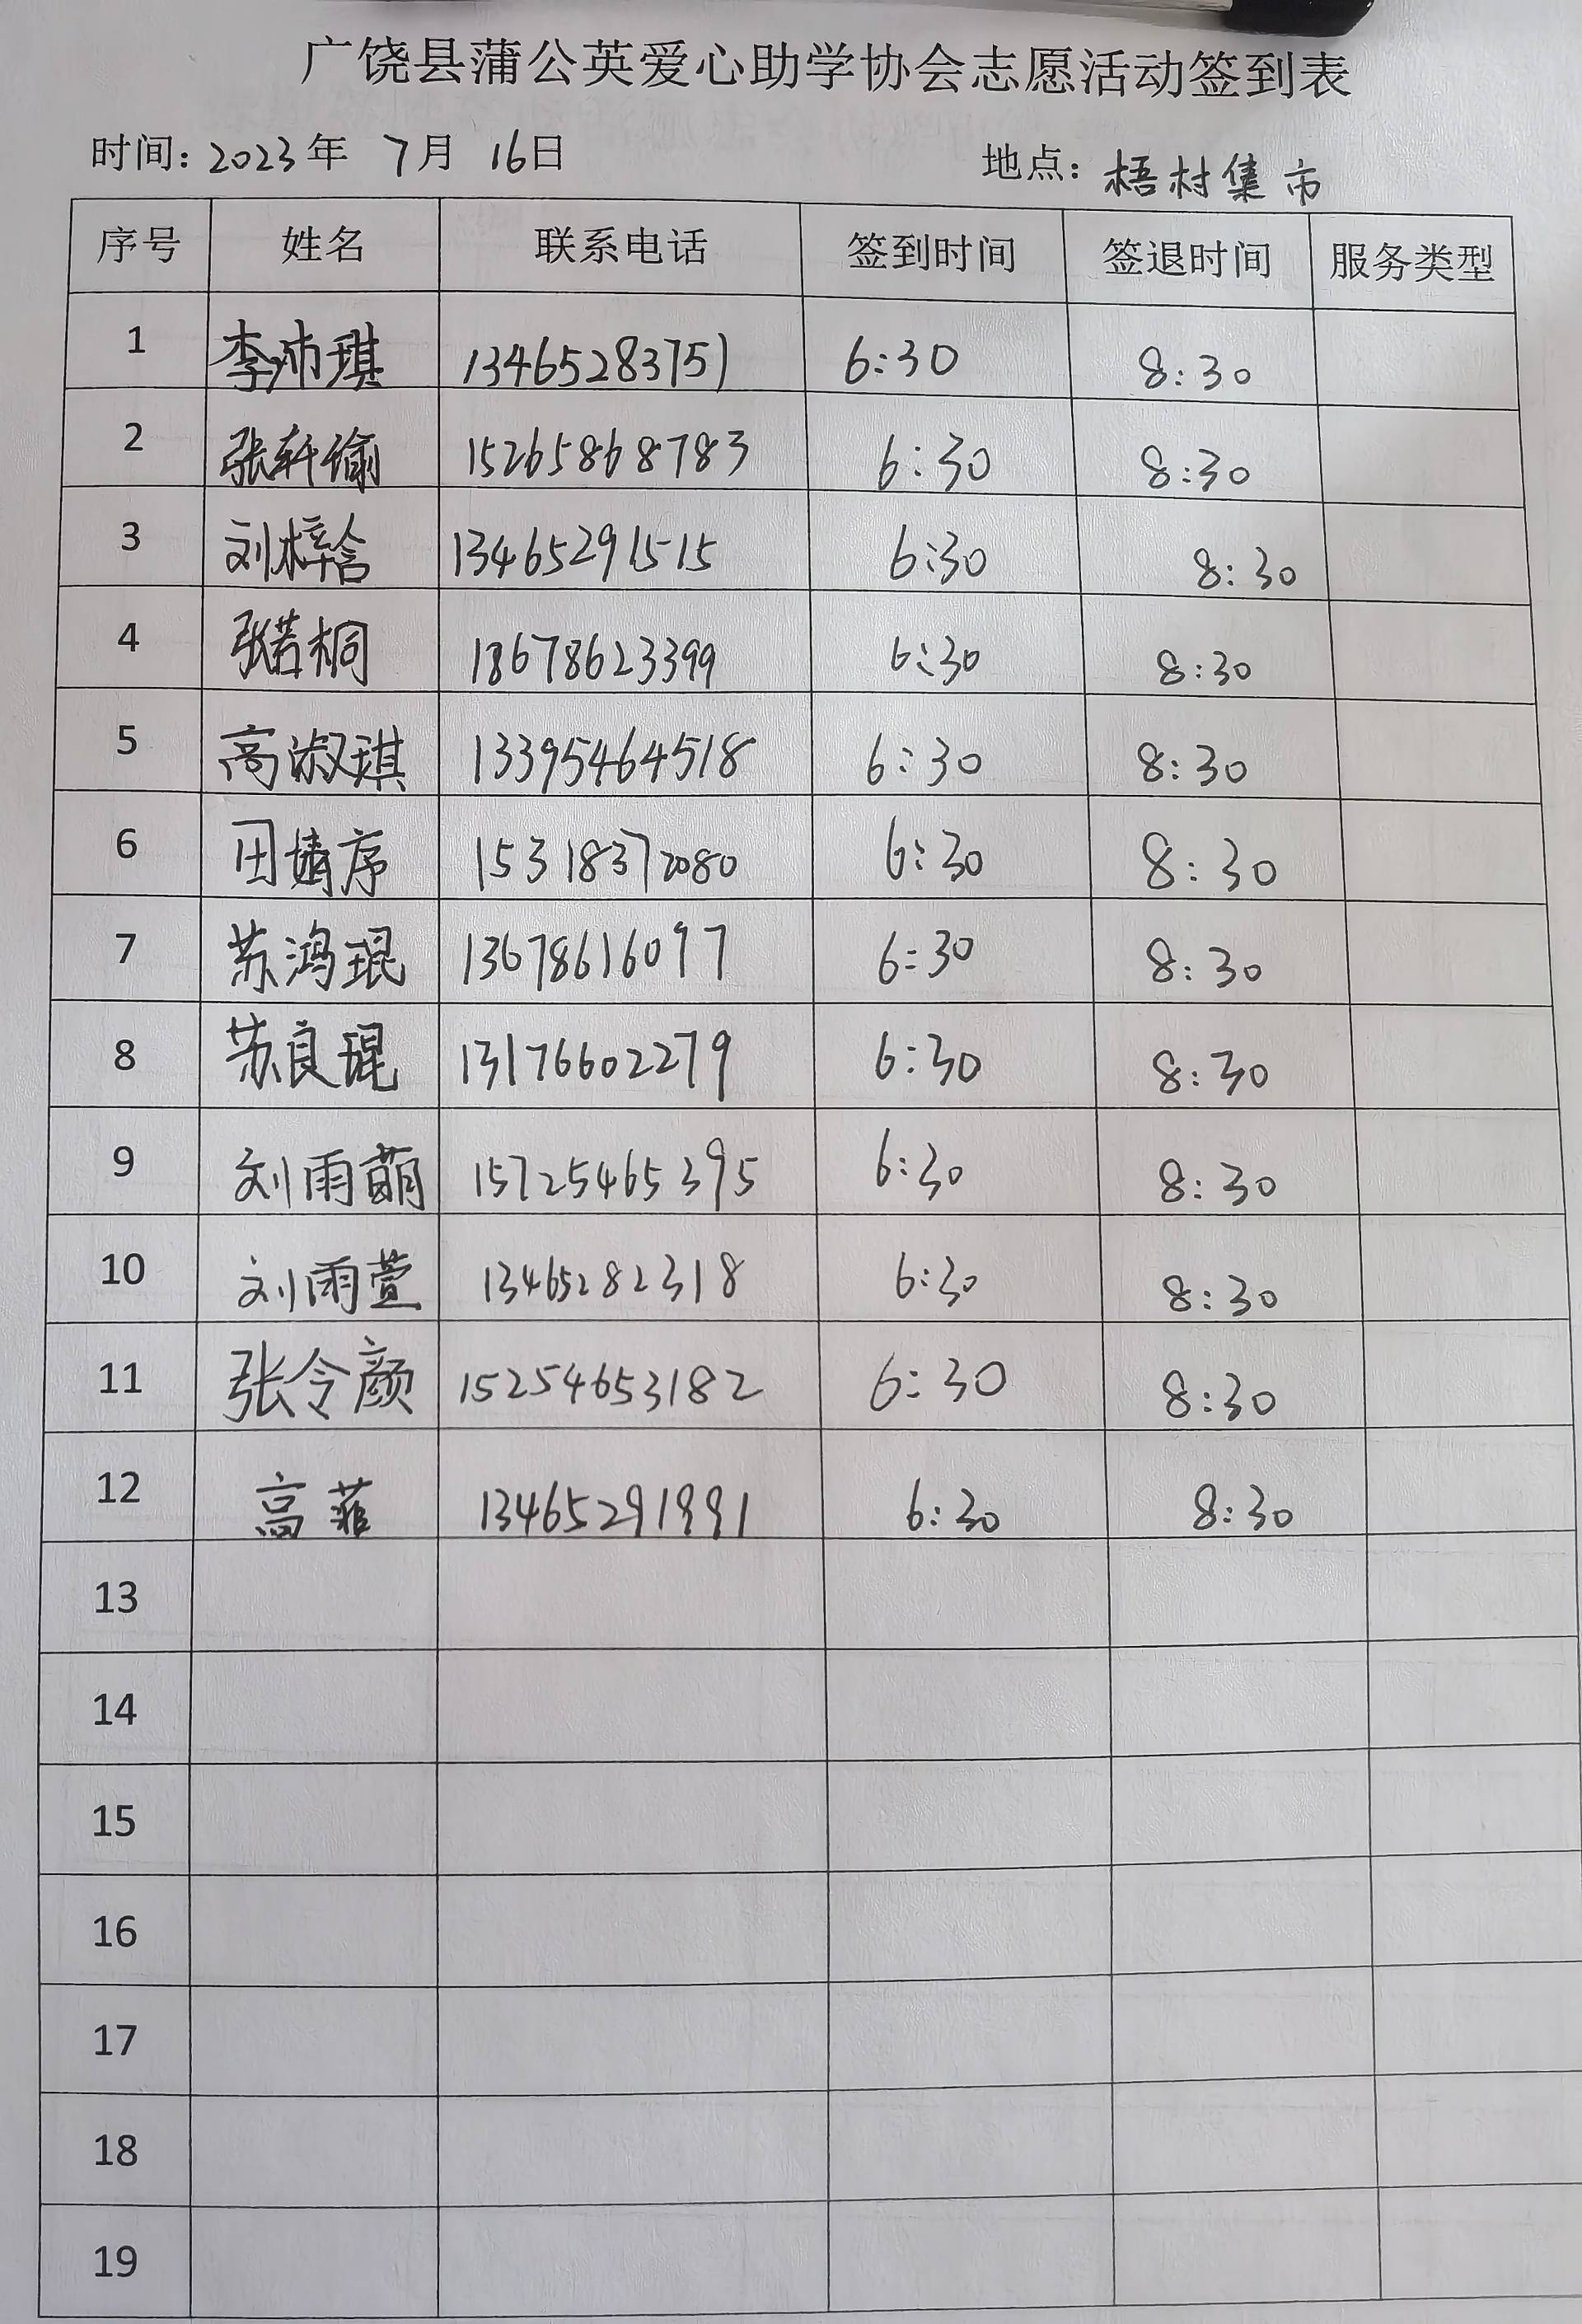 广饶县蒲公英爱心助学协会志愿活动签到表
时间：2023年 7月 16日 地点：梧村集市
序号 姓名 联系电话 签到时间 签退时间 服务类型
1 李沛琪 13465283751 6:30 8:30
2 张轩愉 15265868783 6:30 8:30
3 刘梓含 13465291515 6:30 8:30
4 张若桐 18678623399 6:30 8:30
5 高淑琪 13395464518 6:30 8:30
6 田婧序 15318372080 6:30 8:30
7 苏鸿琨 13678616097 6:30 8:30
8 苏良琨 13176602279 6:30 8:30
9 刘雨萌 15725465395 6:30 8:30
10 刘雨萱 13465282318 6:30 8:30
11 张令颜 15254653182 6:30 8:30
12 高菲 13465291991 6:30 8:30
13
14
15
16
17
18
19